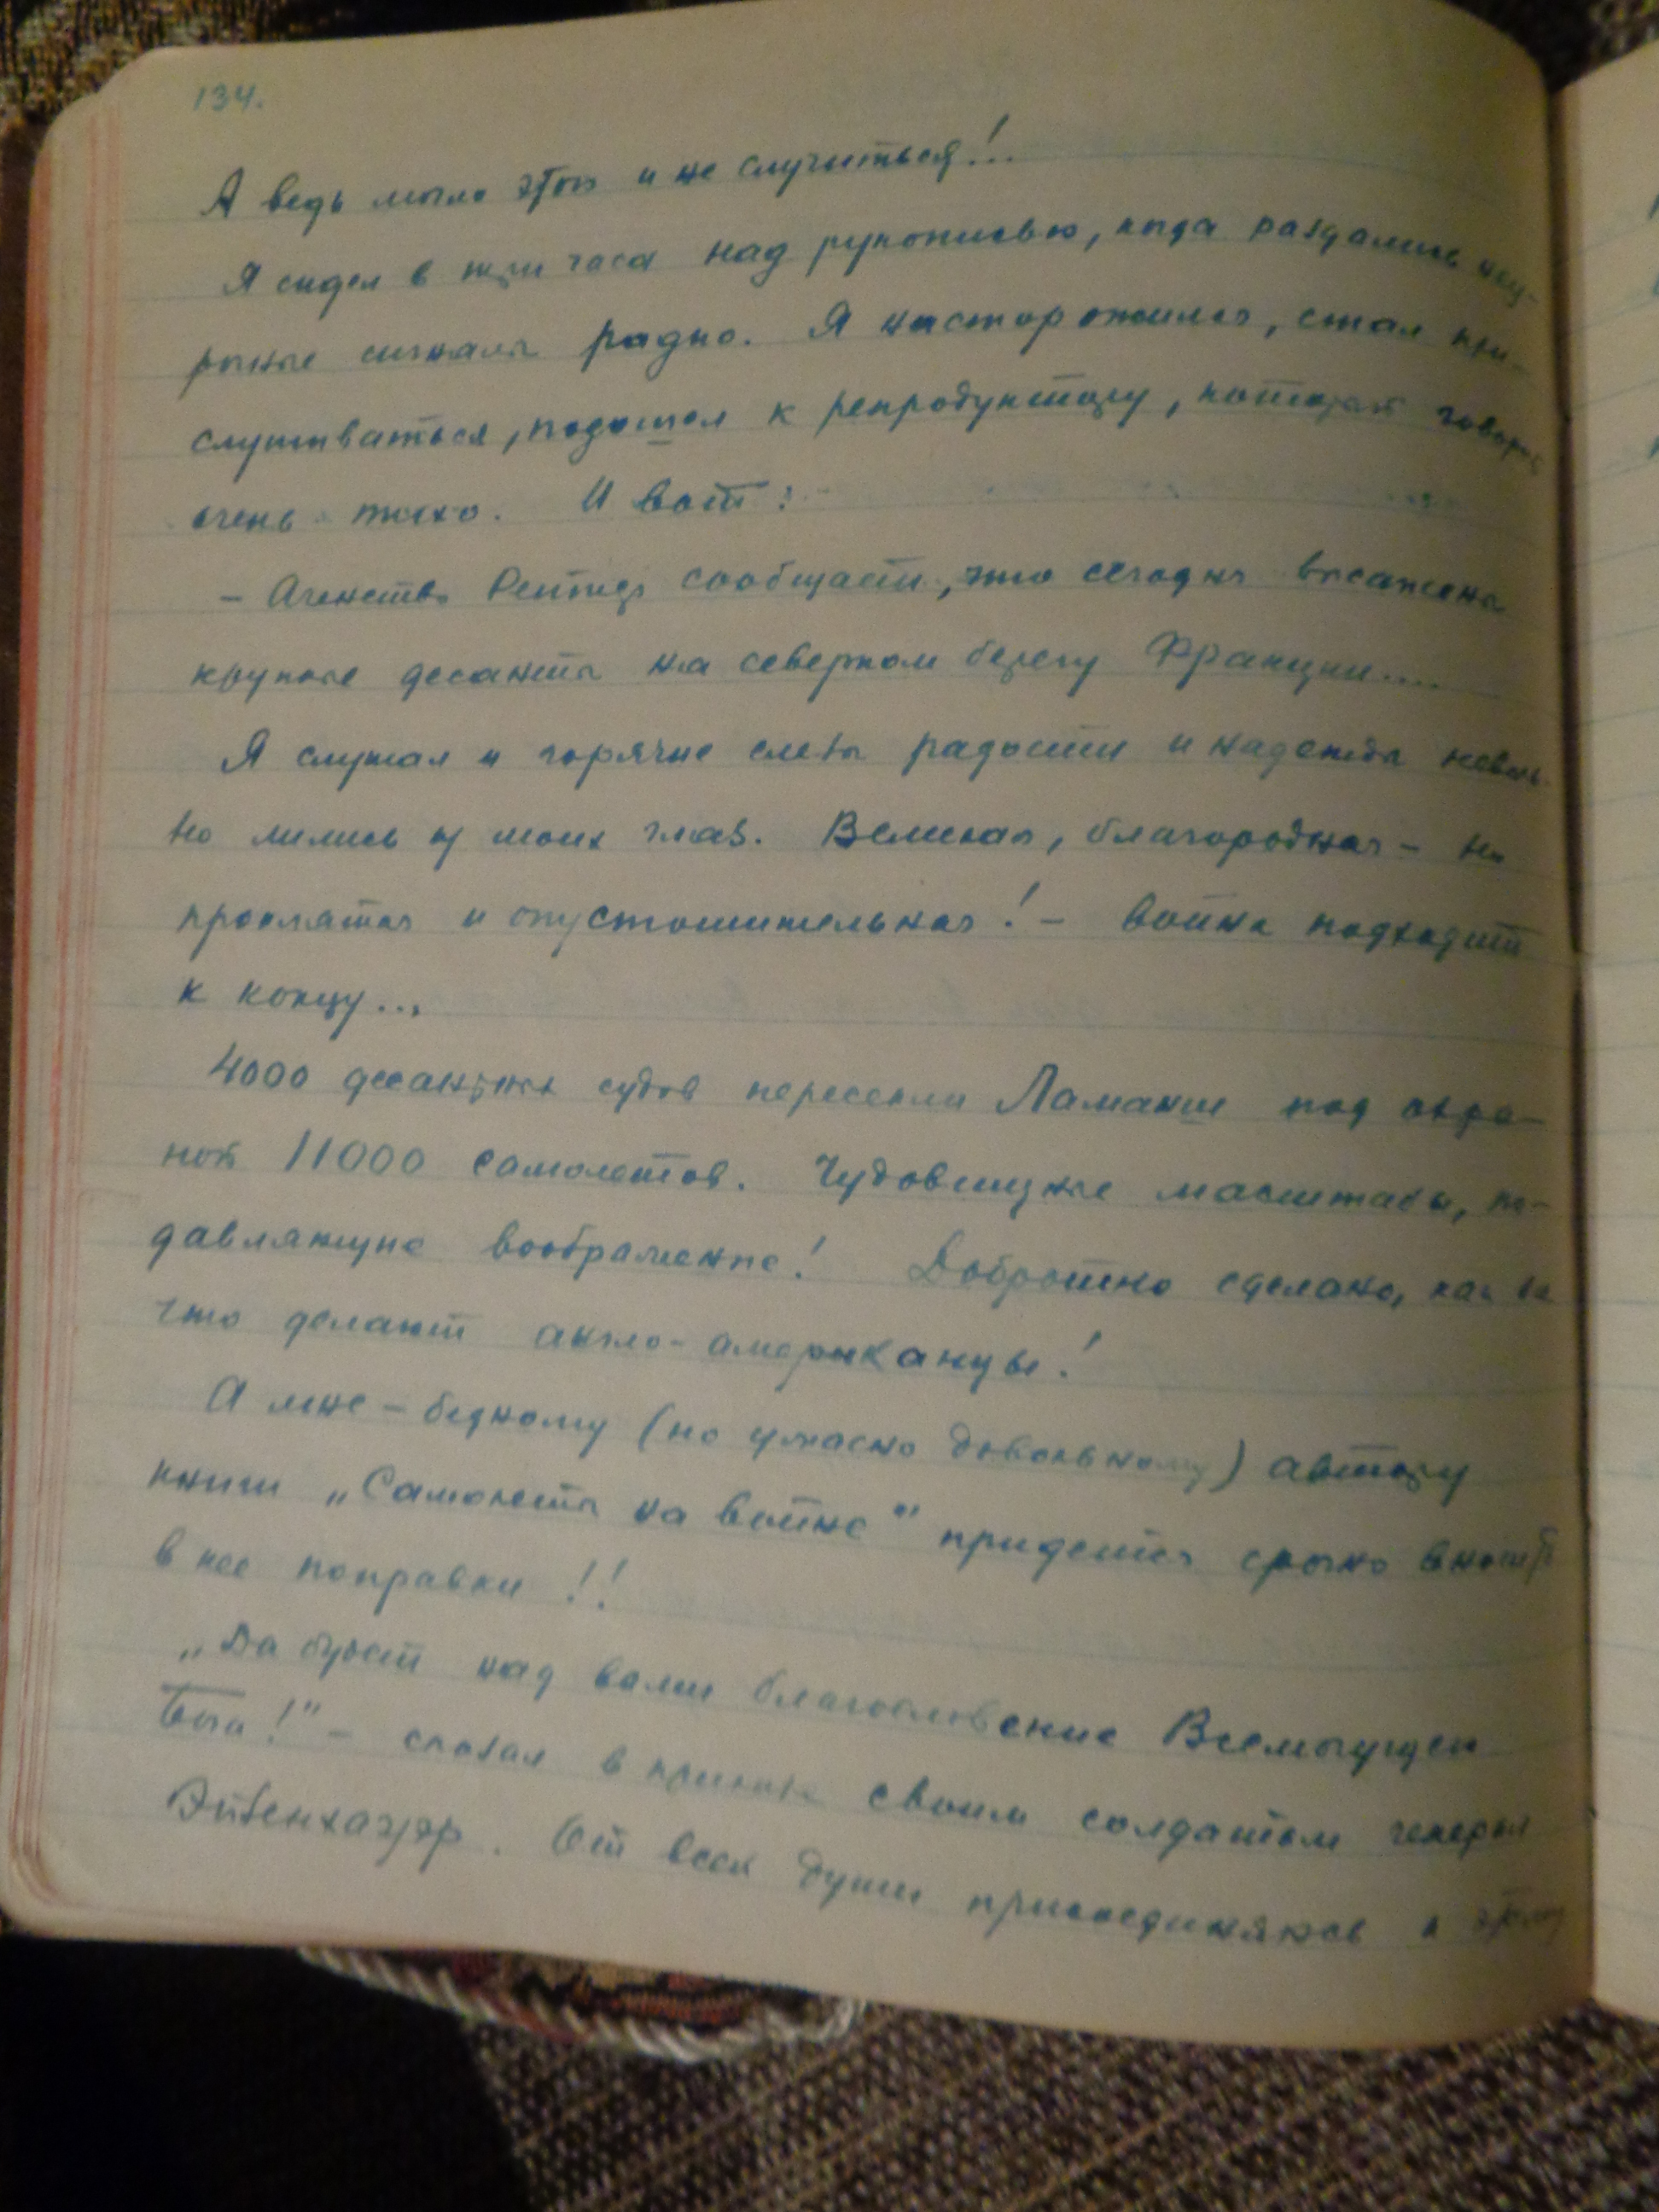 134.
А ведь могло этого и не случиться!..
Я сидел в три часа над рукописью, когда раздались неу-
рочные сигналы радио. Я насторожился, стал при-
слушиваться, подошел к репродуктору, который говорил
очень тихо. И вот:
- Агентство Рейтер сообщает, что сегодня высажены
крупные десанты на северном берегу Франции....
Я слушал и горячие слезы радости и надежды неволь-
но лились из моих глаз. Великая, благородная - но
проклятая и опустошительная! - война подходит
к концу...
4000 десантных судов пересекли Ламанш под охра-
ной 11000 самолетов. Чудовищные масштабы, по-
давляющие воображение! Добротно сделано, как всё
что делают англо-американцы!
А мне - бедному (но ужасно довольному) автору
книги „Самолеты на войне" придется срочно вносить
в нее поправки!!
„Да будет над вами благословение Всемогущего
Бога!" - сказал в приказе своим солдатам генерал
Эйзенхауэр. От всей души присоединяюсь к этому